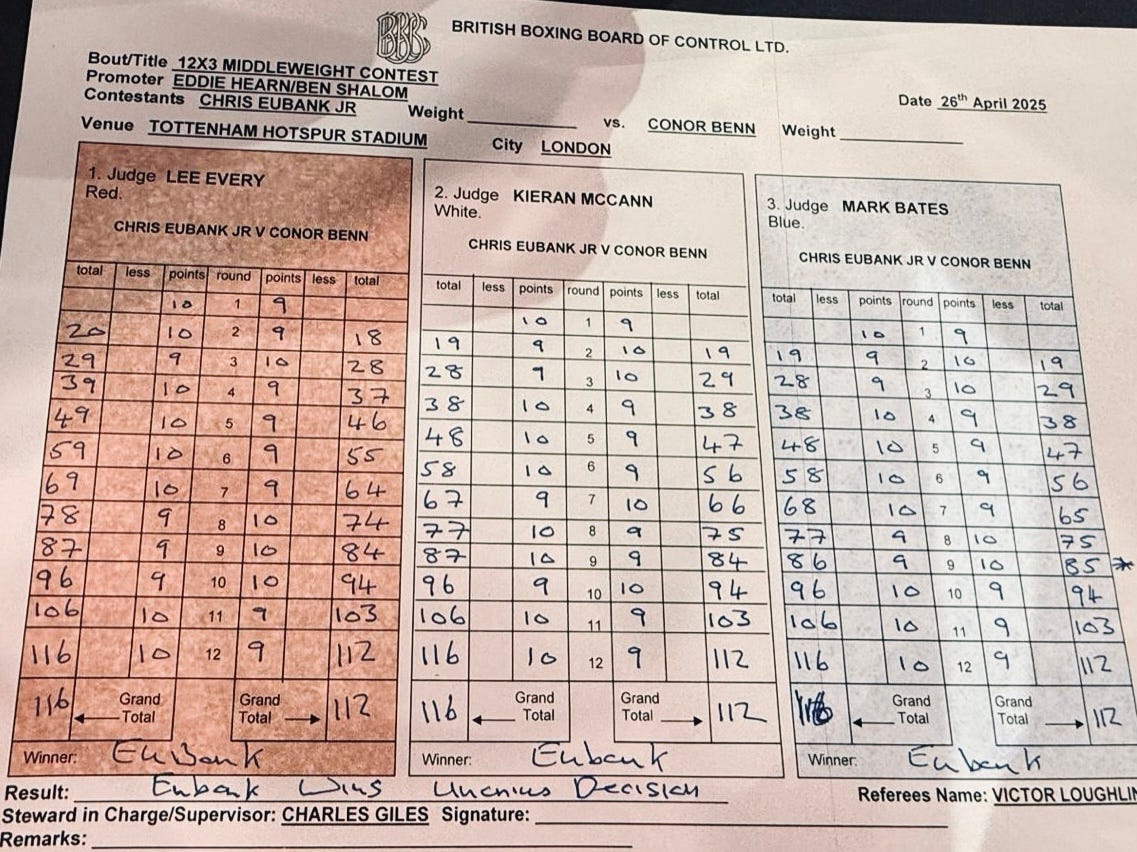 BBBC
BRITISH BOXING BOARD OF CONTROL LTD.
Bout/Title 12X3 MIDDLEWEIGHT CONTEST
Promoter EDDIE HEARN/BEN SHALOM
Date 26th April 2025
Contestants CHRIS EUBANK JR Weight vs. CONOR BENN Weight
Venue TOTTENHAM HOTSPUR STADIUM City LONDON
1. Judge LEE EVERY
Red.
CHRIS EUBANK JR V CONOR BENN
total less points round points less total
10 1 9
20 10 2 9 18
29 9 3 10 28
39 10 4 9 37
49 10 5 9 46
59 10 6 9 55
69 10 7 9 64
78 9 8 10 74
87 9 9 10 84
96 9 10 10 94
106 10 11 9 103
116 10 12 9 112
116 Grand Total Grand Total 112
Winner: EuBank
2. Judge KIERAN MCCANN
White.
CHRIS EUBANK JR V CONOR BENN
total less points round points less total
10 1 9
19 9 2 10 19
28 9 3 10 29
38 10 4 9 38
48 10 5 9 47
58 10 6 9 56
67 9 7 10 66
77 10 8 9 75
87 10 9 9 84
96 9 10 10 94
106 10 11 9 103
116 10 12 9 112
116 Grand Total Grand Total 112
Winner: Eubank
3. Judge MARK BATES
Blue.
CHRIS EUBANK JR V CONOR BENN
total less points round points less total
10 1 9
19 9 2 10 19
28 9 3 10 29
38 10 4 9 38
48 10 5 9 47
58 10 6 9 56
68 10 7 9 65
77 9 8 10 75
86 9 9 10 85 *
96 10 10 9 94
106 10 11 9 103
116 10 12 9 112
116 Grand Total Grand Total 112
Winner: Eubank
Result: Eubank Wins Decision
Referees Name: VICTOR LOUGHLIN
Steward in Charge/Supervisor: CHARLES GILES Signature:
Remarks: